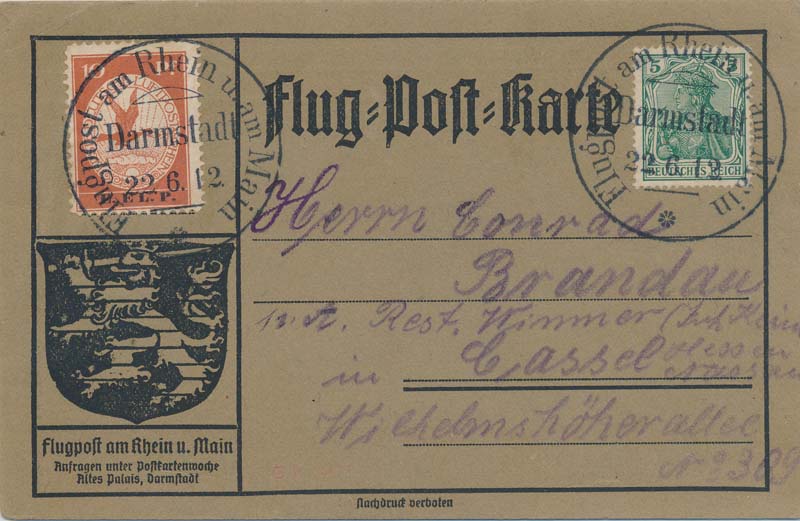 10
E.EL.P.
Flugpost am Rhein u. am Main
Darmstadt
22.6.12
Flug=Post=Karte
5
DEUTSCHES REICH
Flugpost am Rhein u. am Main
Darmstadt
22.6.12
Herrn Conrad
Brandau
Rest. Wimmer
in Cassel Hessen
Nassau
Wilhelmshöherallee
No 309
Flugpost am Rhein u. Main
Anfragen unter Postkartenwoche
Altes Palais, Darmstadt
Nachdruck verboten